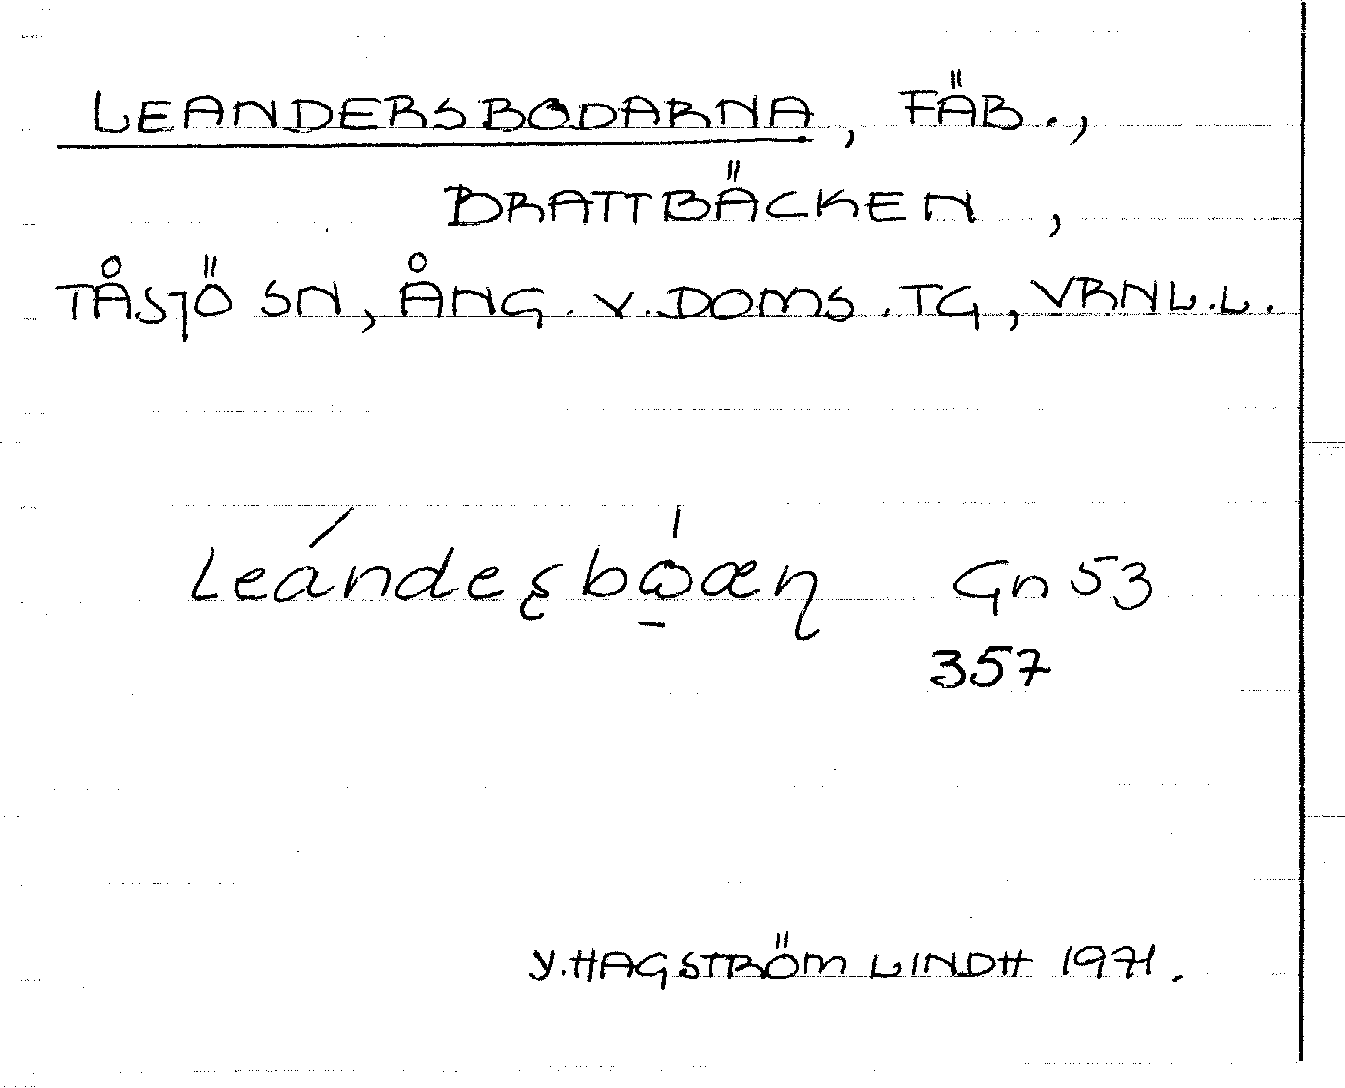 LEANDERSBODARNA, FÄB.,
BRATTBÄCKEN,
TÅSJÖ SN, ÅNG. V. DOMS. TG, VRNL.L.
Gn 53
357
Y. HAGSTRÖM LINDH 1971.